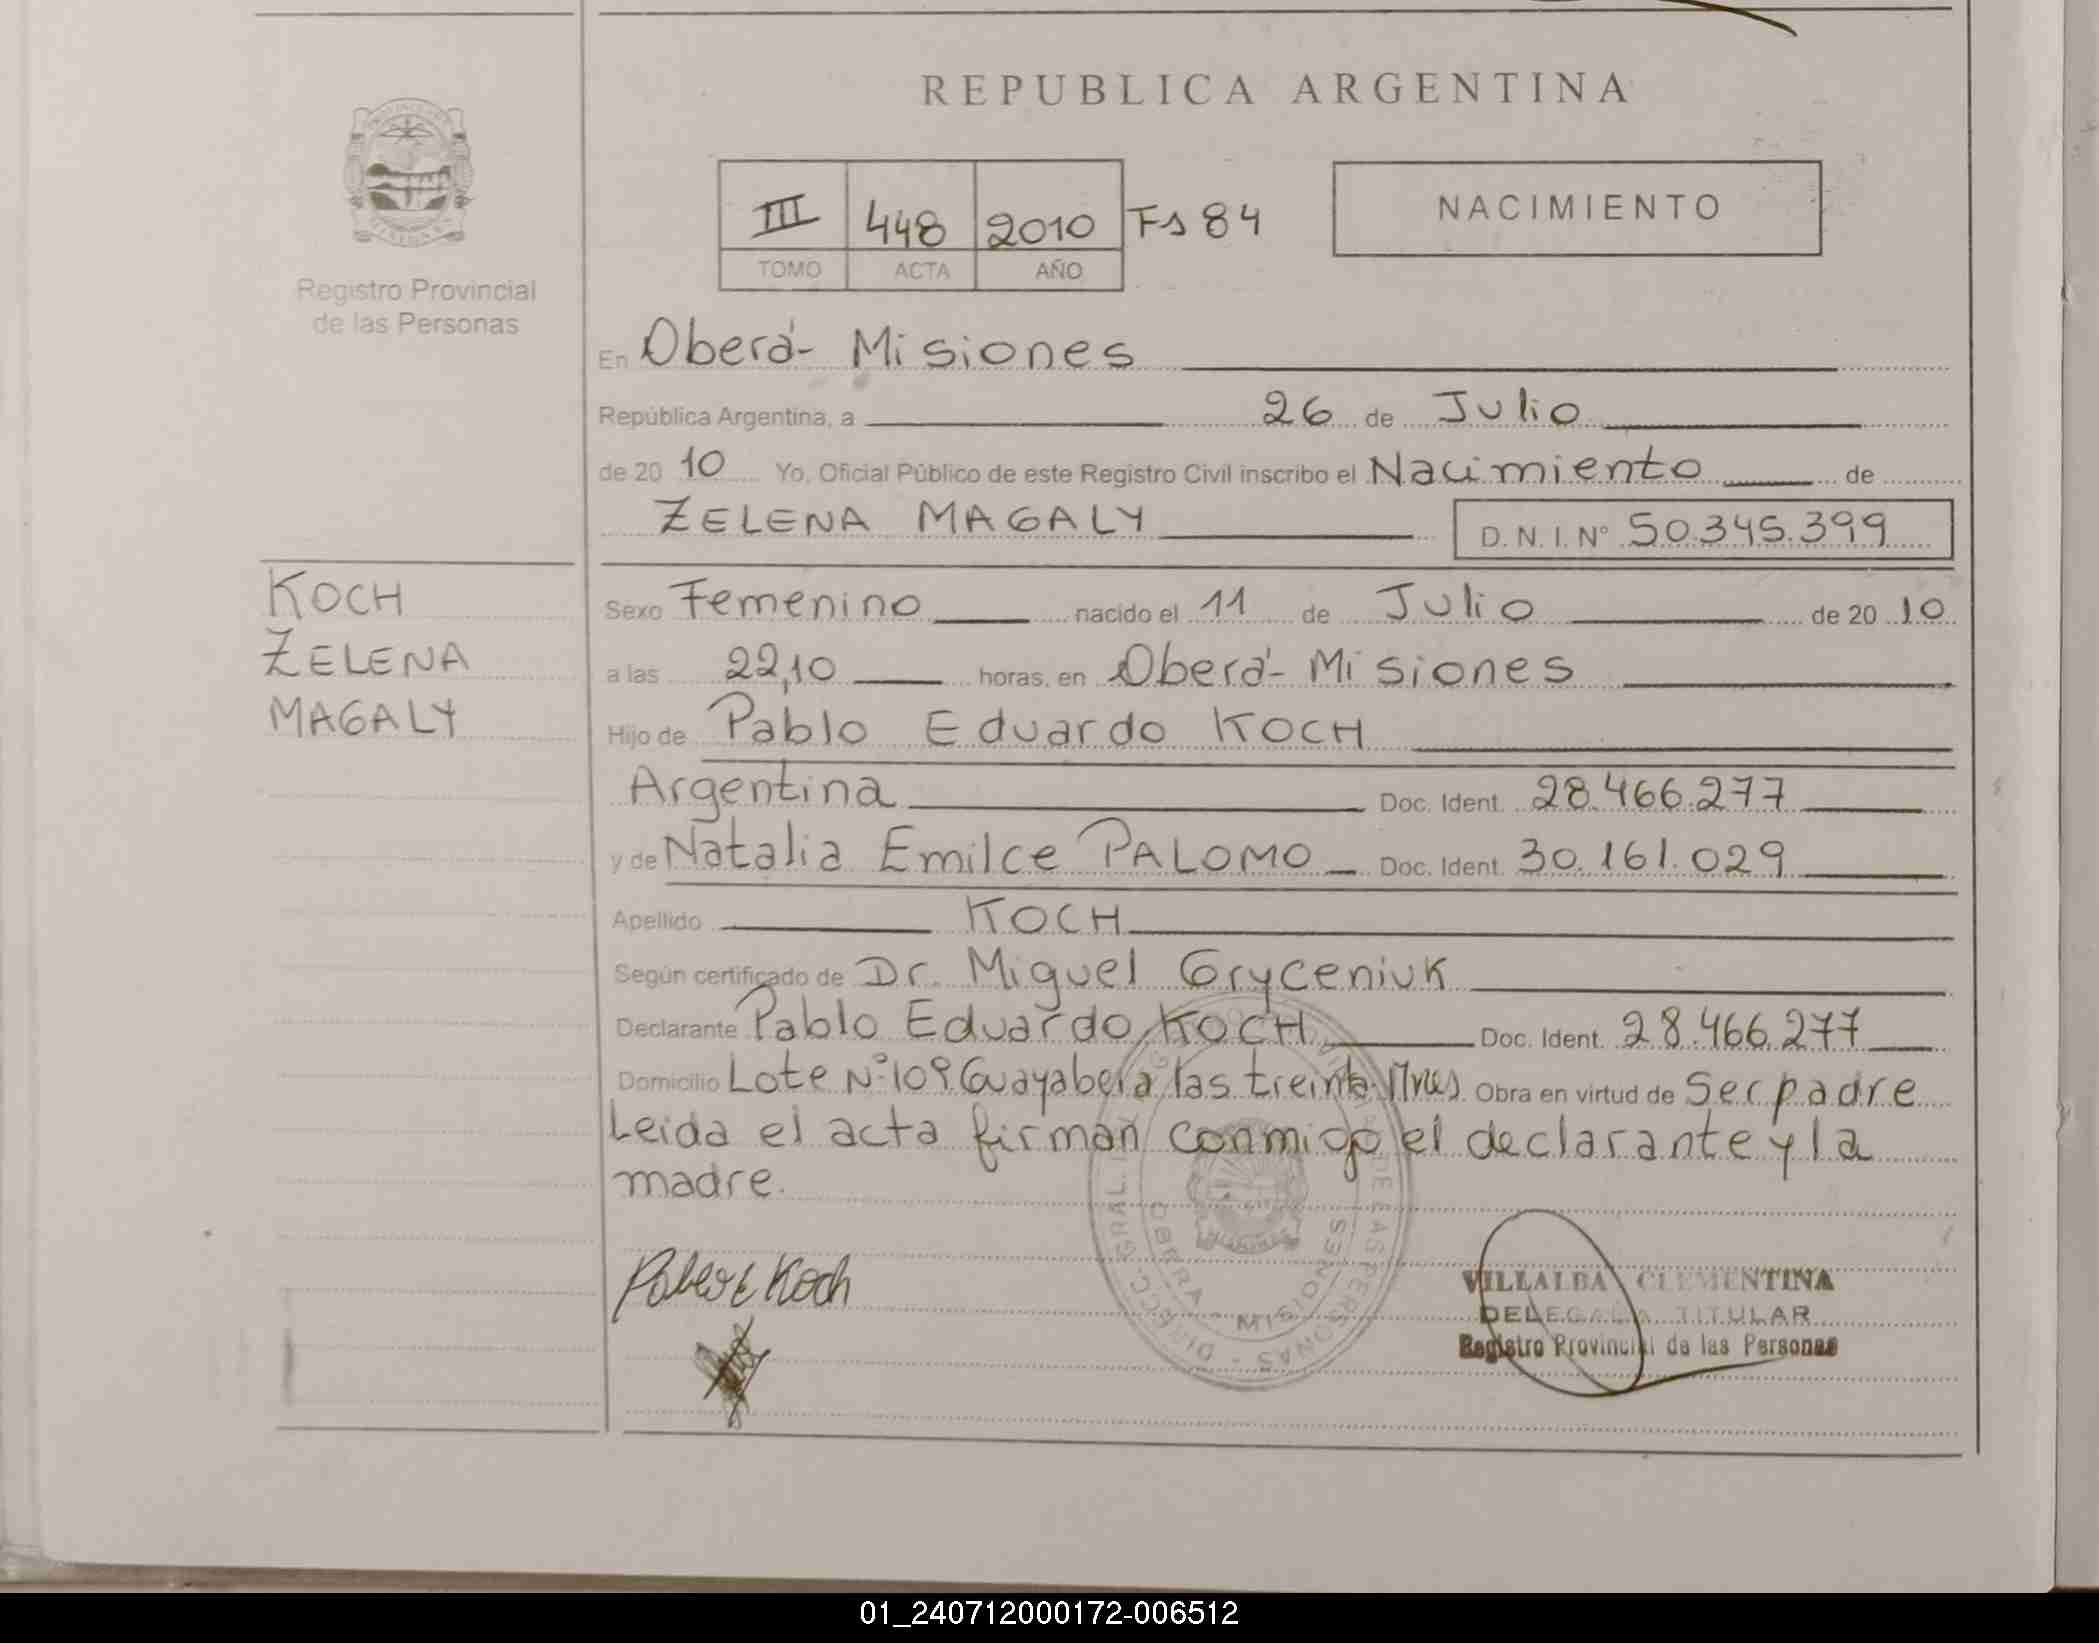 REPUBLICA ARGENTINA
Registro Provincial
de las Personas
III 448 2010 Fs 84
TOMO ACTA AÑO
NACIMIENTO
En Oberá- Misiones
República Argentina, a 26 de Julio
de 20 10 Yo, Oficial Público de este Registro Civil inscribo el Nacimiento de
ZELENA MAGALY D.N.I. Nº 50.345.399
KOCH
ZELENA
MAGALY
Sexo Femenino nacido el 11 de Julio de 20 10
a las 22,10 horas, en Oberá- Misiones
Hijo de Pablo Eduardo KOCH
Argentina Doc. Ident. 28.466.277
y de Natalia Emilce PALOMO Doc. Ident. 30.161.029
Apellido KOCH
Según certificado de Dr. Miguel Gryceniuk
Declarante Pablo Eduardo KOCH Doc. Ident. 28.466.277
Domicilio Lote Nº109 Guayabera las treinta Mnes. Obra en virtud de Ser padre
Leida el acta firman conmigo el declarante y la
madre.
Koch
OBERA - MISIONES
VILLALBA CLEMENTINA
DELEGADA TITULAR
Registro Provincial de las Personas
01_240712000172-006512